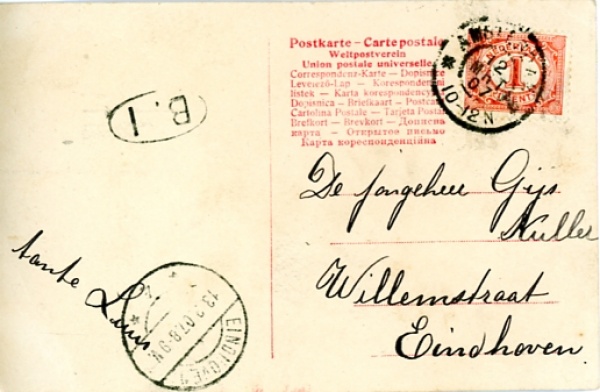 Postkarte – Carte postale
Weltpostverein
Union postale universelle
Correspondenz-Karte – Dopisnice
Levelező-Lap – Korespondenzni
listek – Karta korespondencyjna
Dopisnica – Briefkaart – Postcard
Cartolina Postale – Tarjeta Postal
Brefkort – Brevkort – Дописна
карта – Открытое письмо
Карта кореспонденційна
12
MRT
07
10-12N
1
CENT
B. 1
De jongeheer Gijs
Kuller
Willemstraat
Eindhoven
tante
EINDHOVEN